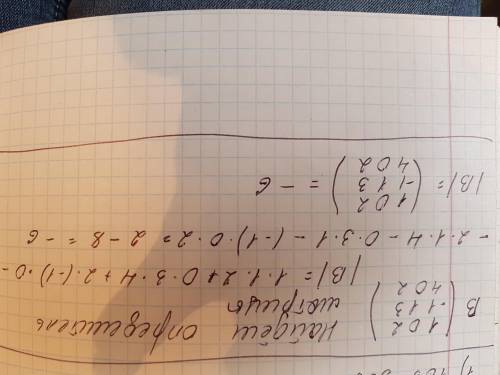 B ( 1 0 2 найдём определитель
-1 1 3 матрицы
4 0 2 )
|B| = 1·1·2 + 0·3·4 + 2·(-1)·0 -
- 2·1·4 - 0·3·1 - (-1)·0·2 = 2 - 8 = - 6
|B| = ( 1 0 2
-1 1 3
4 0 2 ) = - 6